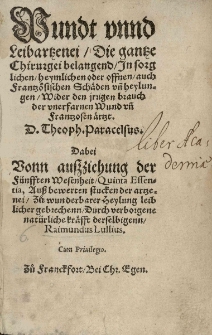 Wundt vnnd
Leibartzenei / Die gantze
Chirurgei belangend / In sorg
lichen / heymlichen oder offnen / auch
Frantzösischen Schäden vñ heylun-
gen / Wider den jrrigen brauch
der vnerfarnen Wund vñ
Frantzosen ärtzt.
D. Theoph. Paracelsus.
Dabei
Vonn außziehung der
Fünfften Wesenheit / Quinta Essen-
tia, Auß bewerten stucken der artze-
nei / Zů wunderbarer Heylung leib
licher gebrechenn / Durch verborgene
natürliche kräfft derselbigenn /
Raimundus Lullius.
Cum Priuilegio.
Zů Franckfort / Bei Chr. Egen.
liber Aca
demiæ